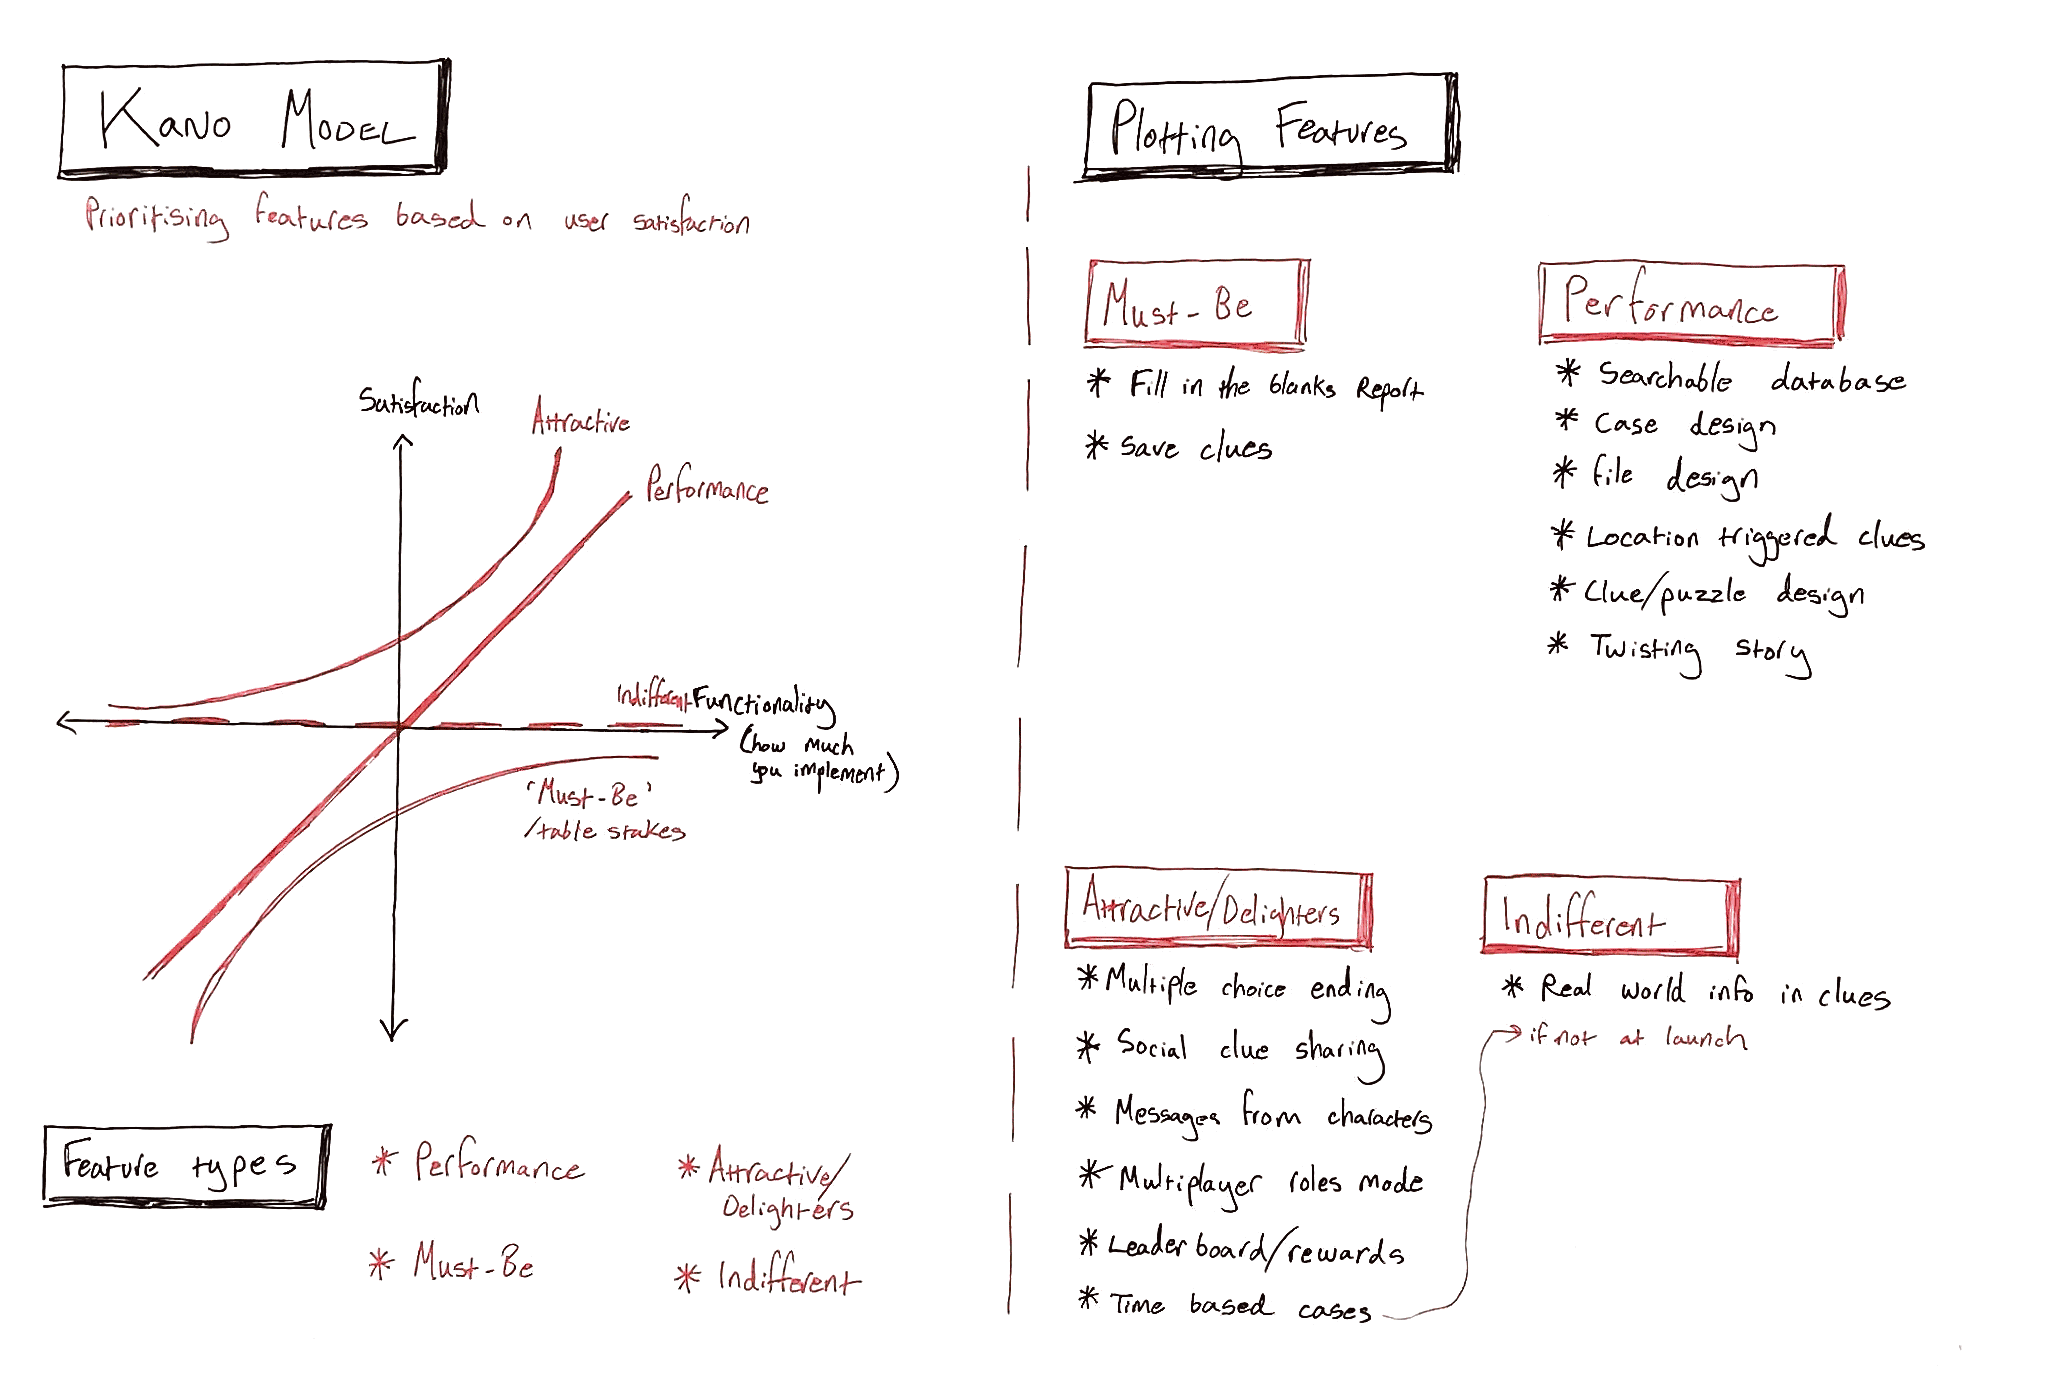 Kano Model
Prioritising features based on user satisfaction
Satisfaction
Attractive
Performance
Indifferent
Functionality
(how much
you implement)
'Must-Be'
/table stakes
Feature types
* Performance
* Attractive/
Delighters
* Must-Be
* Indifferent
Plotting Features
Must-Be
* Fill in the blanks Report
* Save clues
Performance
* Searchable database
* Case design
* file design
* Location triggered clues
* Clue/puzzle design
* Twisting story
Attractive/Delighters
* Multiple choice ending
* Social clue sharing
* Messages from characters
* Multiplayer roles mode
* Leader board/rewards
* Time based cases
Indifferent
* Real world info in clues
if not at launch